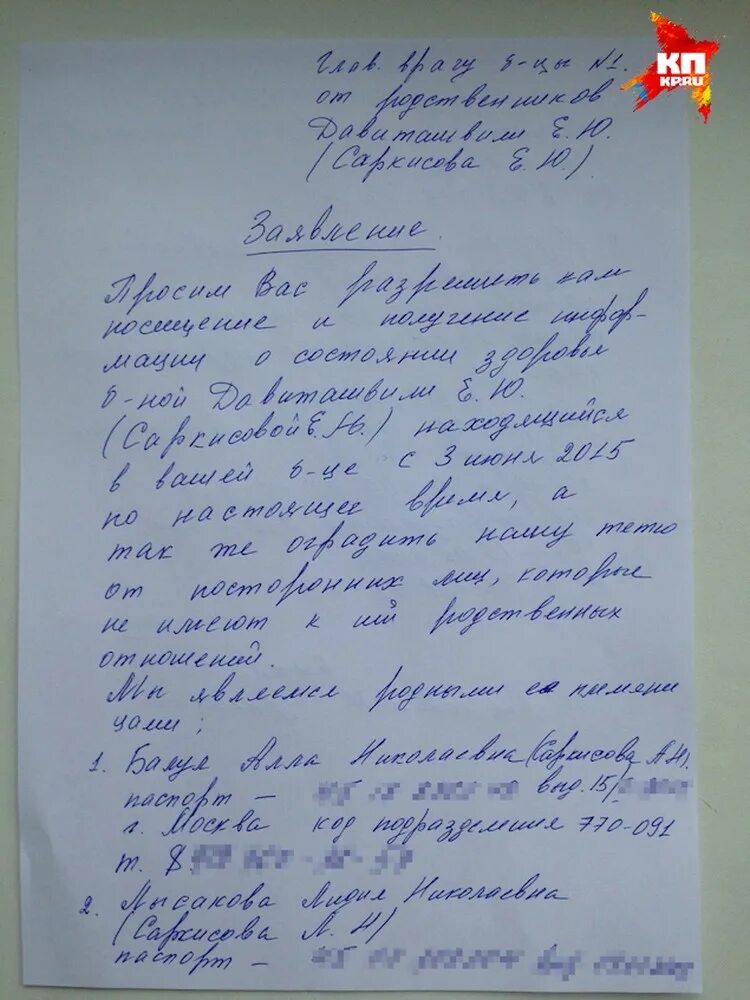 КП
KP.RU
Глав. врагу б-цы №1.
от родственников
Давиташвили Е.Ю.
(Саркисова Е.Ю.)
Заявление.
Просим Вас разрешить нам
посещение и получение инфор-
мации о состоянии здоровья
б-ной Давиташвили Е.Ю.
(Саркисовой Е.Ю.) находящийся
в вашей б-це с 3 июня 2015
по настоящее время, а
так же оградить нашу тетю
от посторонних лиц, которые
не имеют к ней родственных
отношений.
Мы являемся родными ея племени
цами:
1. Балуя Алла Николаевна (Саркисова А.Н).
паспорт – выд. 15/
г. Москва код подразделения 770-091
т. 8
2. Лысакова Лидия Николаевна
(Саркисова Л.Н)
паспорт –